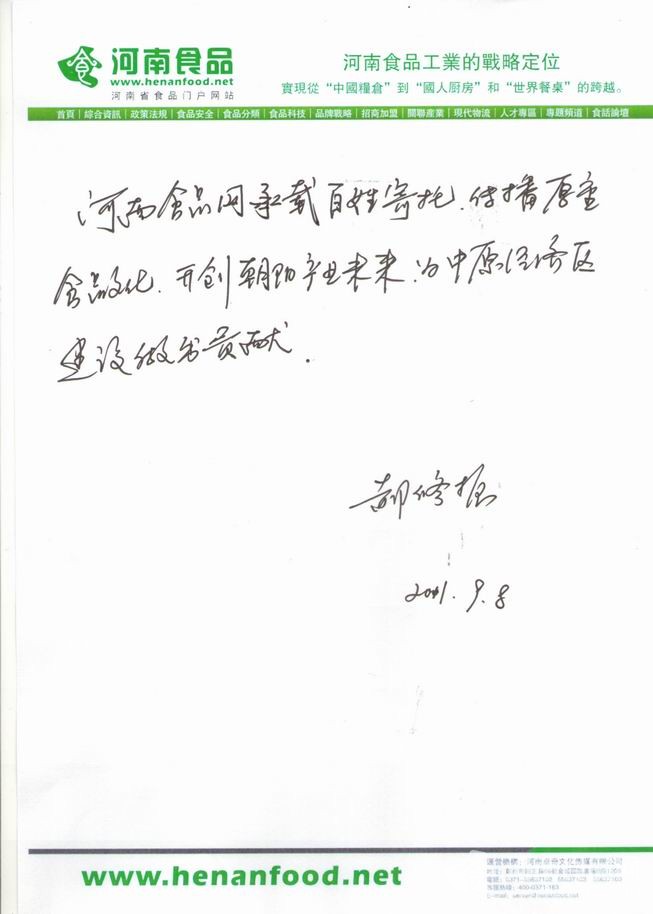 河南食品
www.henanfood.net
河南省食品门户网站
河南食品工業的戰略定位
實現從“中國糧倉”到“國人厨房”和“世界餐桌”的跨越。
首頁|綜合資訊|政策法規|食品安全|食品分類|食品科技|品牌戰略|招商加盟|關聯產業|現代物流|人才專區|專題頻道|食話論壇
河南食品网承载百姓寄托、传播厚重
食品文化、开创朝阳产业未来、为中原经济区
建设做出贡献.
郝修振
2011.9.8
www.henanfood.net
運營機構:河南
400-0371-163
e-mail: